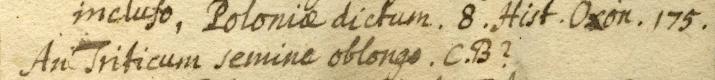 incluso, Poloniæ dictum. 8. Hist. Oxon. 175.
An Triticum semine oblongo. C.B?